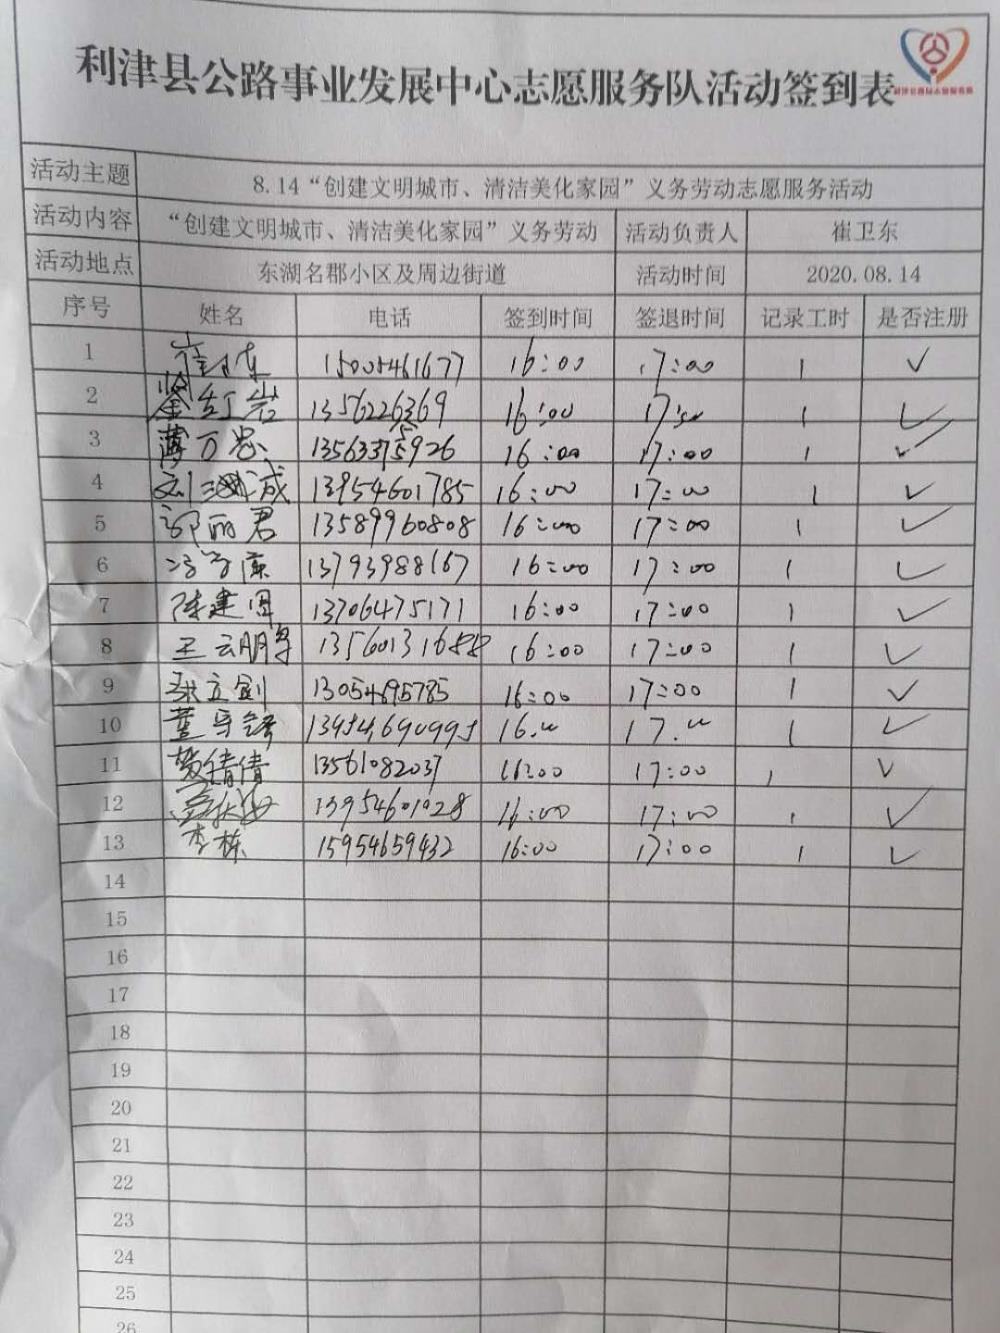 利津县公路事业发展中心志愿服务队活动签到表
活动主题 8.14“创建文明城市、清洁美化家园”义务劳动志愿服务活动
活动内容 “创建文明城市、清洁美化家园”义务劳动 活动负责人 崔卫东
活动地点 东湖名郡小区及周边街道 活动时间 2020.08.14
序号 姓名 电话 签到时间 签退时间 记录工时 是否注册
1 15005461677 16:00 17:00 1 ✓
2 16:00 17:00 1 ✓
3 薄万忠 16:00 17:00 1 ✓
4 13954601785 16:00 17:00 1 ✓
5 郭丽君 13589960808 16:00 17:00 1 ✓
6 13793988167 16:00 17:00 1 ✓
7 陈建国 13706475171 16:00 17:00 1 ✓
8 王云鹏 16:00 17:00 1 ✓
9 张立剑 13054695785 16:00 17:00 1 ✓
10 16.00 17.00 1 ✓
11 倩倩 13561082037 16:00 17:00 1 ✓
12 16:00 17:00 1 ✓
13 李栋 15954659432 16:00 17:00 1 ✓
14
15
16
17
18
19
20
21
22
23
24
25
26